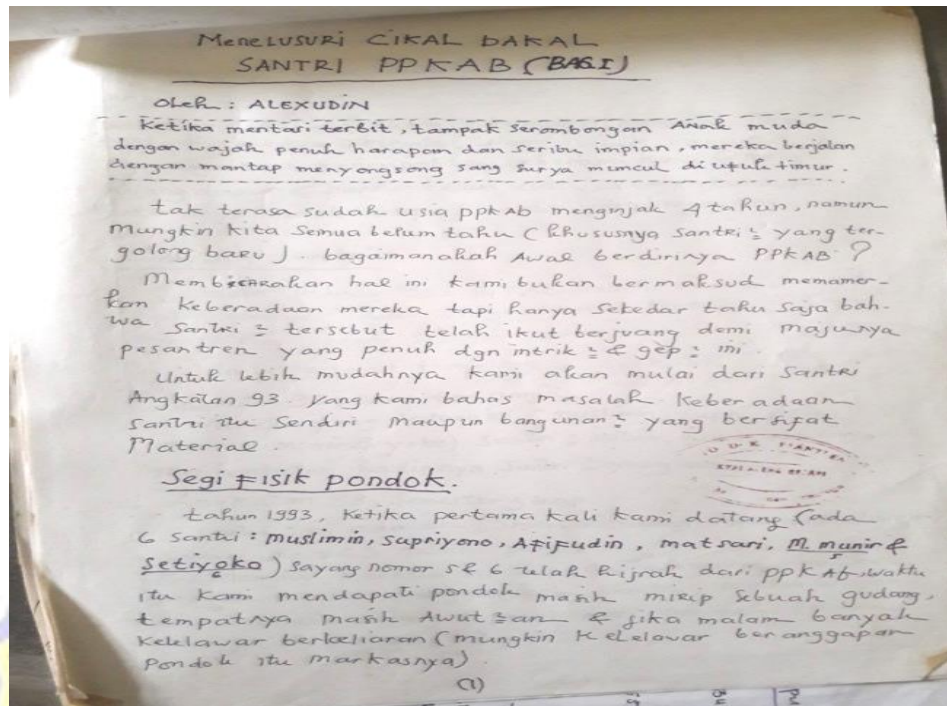 MENELUSURI CIKAL BAKAL
SANTRI PPKAB (BAG.I)
OLEH : ALEXUDIN
Ketika mentari terbit, tampak serombongan Anak muda
dengan wajah penuh harapan dan seribu impian, mereka berjalan
dengan mantap menyongsong sang surya muncul di ufuk timur.
tak terasa sudah usia ppkAb menginjak 4 tahun, namun
mungkin kita semua belum tahu (khususnya santri² yang ter-
golong baru). bagaimanakah Awal berdirinya PPKAB ?
Membicarakan hal ini kami bukan bermaksud memamer-
kan keberadaan mereka tapi hanya sekedar tahu saja bah-
wa santri² tersebut telah ikut berjuang demi majunya
pesantren yang penuh dgn intrik² & gep² ini.
Untuk lebih mudahnya kami akan mulai dari santri
Angkatan 93. yang kami bahas masalah keberadaan
santri itu sendiri maupun bangunan² yang bersifat
Material.
Segi Fisik pondok.
tahun 1993, ketika pertama kali kami datang (ada
6 santri : muslimin, supriyono, Afifudin, matsari, M. munir &
5
Setiyoko) sayang nomor 5 & 6 telah hijrah dari ppkAb, waktu
6
itu kami mendapati pondok masih mirip sebuah gudang,
tempatnya masih Awut²an & jika malam banyak
kelelawar berkeliaran (mungkin kelelawar beranggapan
pondok itu markasnya).
(1)